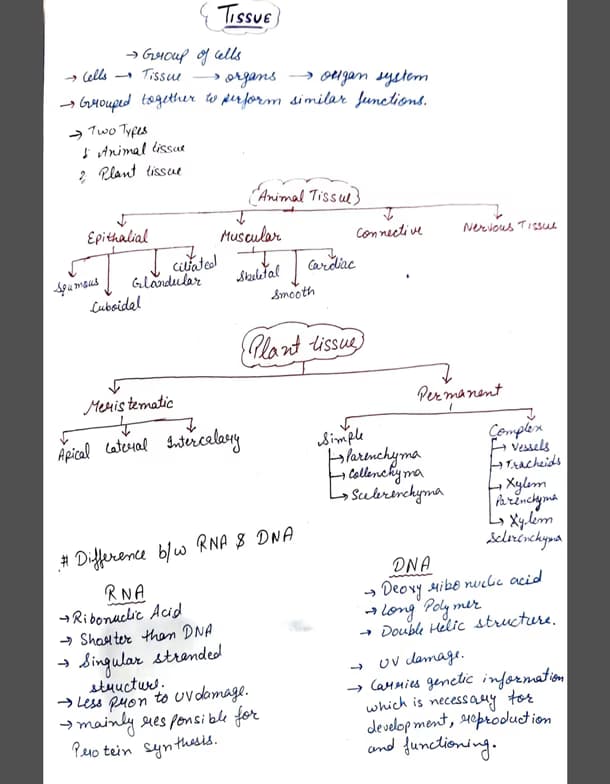 TISSUE
→ Group of cells
→ Cells → Tissue → organs → organ system
→ Grouped together to perform similar functions.
→ Two Types
1 Animal tissue
2 Plant tissue
Animal Tissue
Epithalial Muscular Connective Nervous Tissue
Squmous Cuboidal Glandular Ciliated
Skeletal Smooth Cardiac
Plant tissue
Meristematic Permanent
Apical Lateral Intercalary
Simple
→ Parenchyma
→ Collenchyma
→ Sclerenchyma
Complex
→ Vessels
→ Tracheids
→ Xylem
Parenchyma
→ Xylem
Sclerenchyma
# Difference b/w RNA & DNA
RNA
→ Ribonuclic Acid
→ Shorter than DNA
→ Singular stranded
structure.
→ Less pron to UV damage.
→ mainly responsible for
Protein synthesis.
DNA
→ Deoxy ribo nuclic acid
→ Long Polymer
→ Double Helic structure.
→ UV damage.
→ Carries genetic information
which is necessary for
development, reproduction
and functioning.